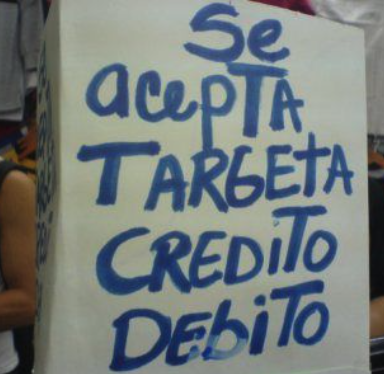 Se
acepTA
TARGETA
CREDITO
DEbiTO